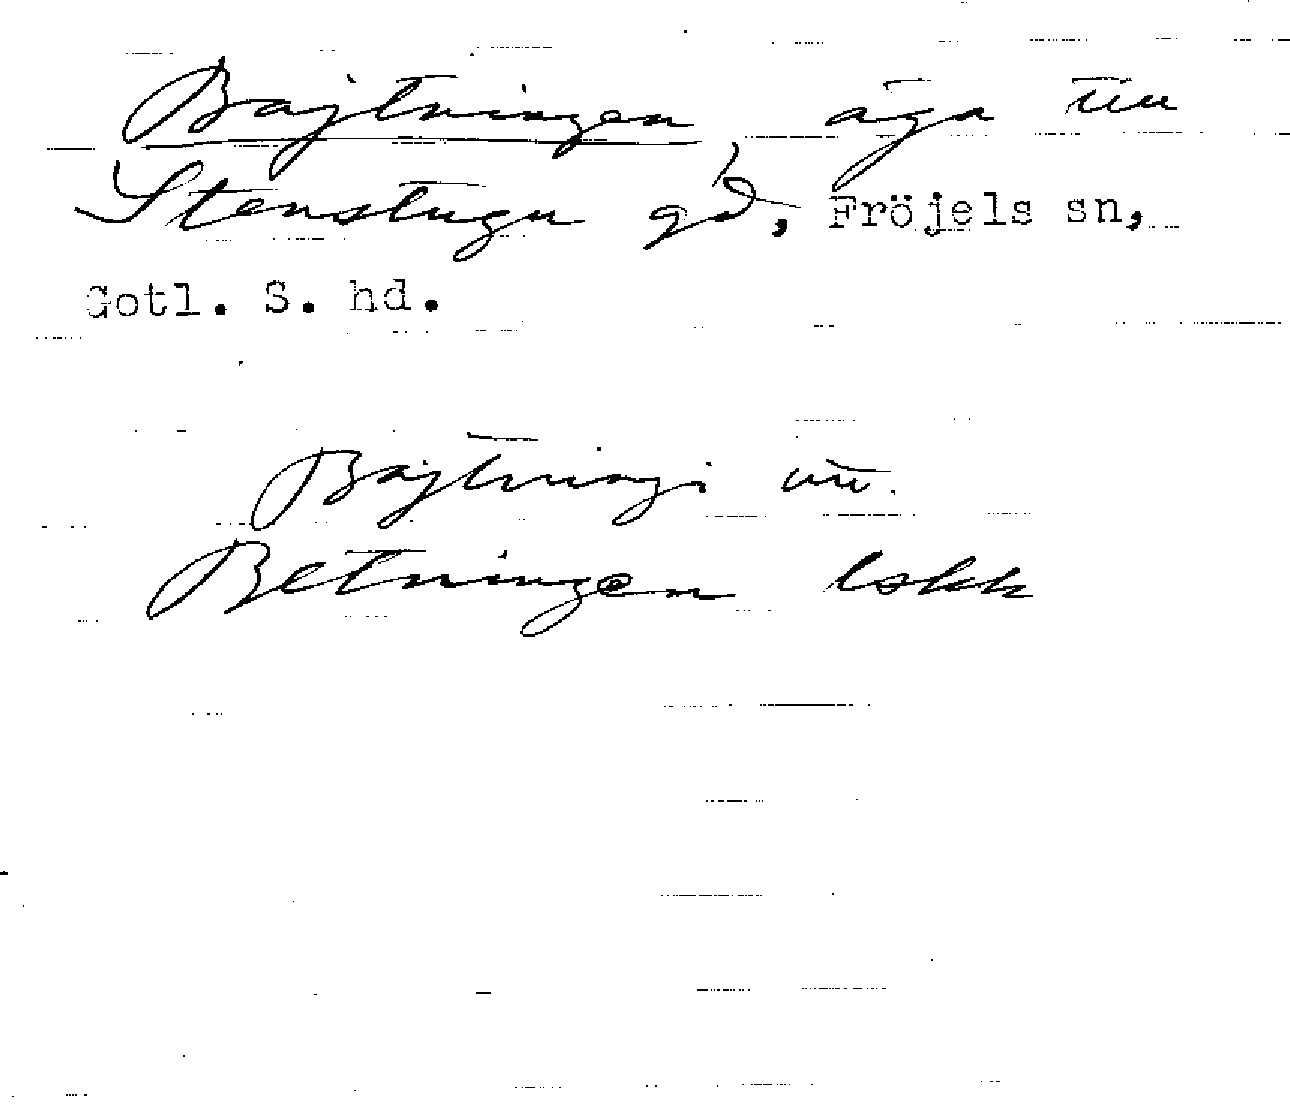 Bajtningen äga un
Stenstugu gd, Fröjels sn,
Gotl. S. hd.
Bajtningi un.
Betningen lskk